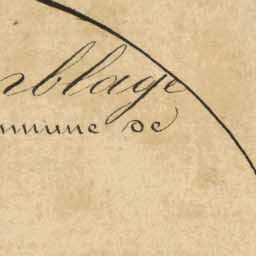 blage
mmune de